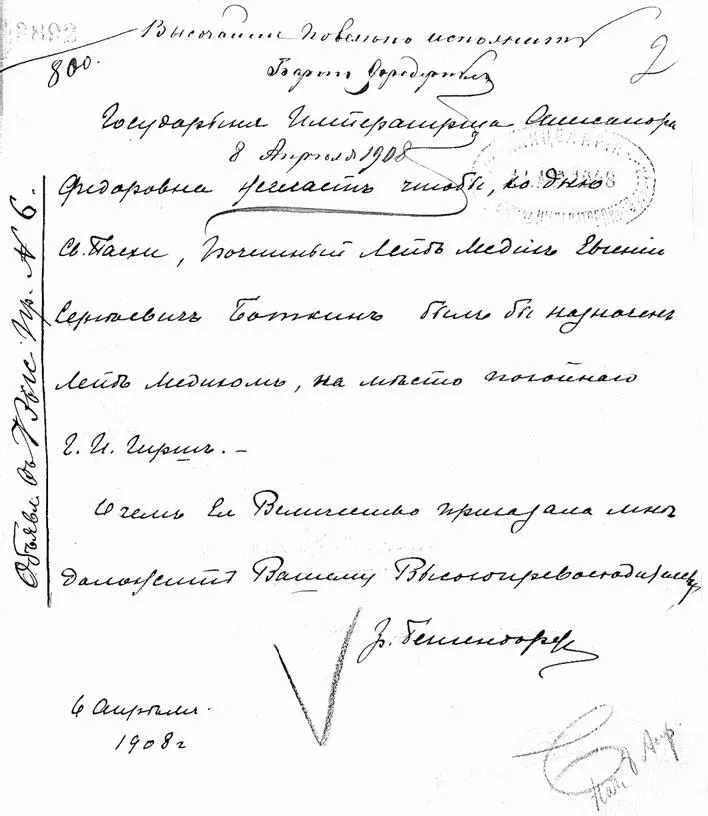 Высочайше повелено исполнить
2
800.
Барон Фредериксъ
Государыня Императрица Александра
8 Апреля 1908
Федоровна желаетъ чтобы, ко дню
Св. Пасхи, Почетный Лейбъ Медикъ Евгеній
Сергѣевичъ Боткинъ былъ бы назначенъ
Лейбъ Медикомъ, на мѣсто покойнаго
Г. И. Гиршъ. –
О чемъ Ея Величество приказала мнѣ
доложить Вашему Высокопревосходительству
Гр. Бенкендорфъ
6 Апрѣля.
1908 г
Объявл. въ Выс. Пр. № 6.
8 Апр.